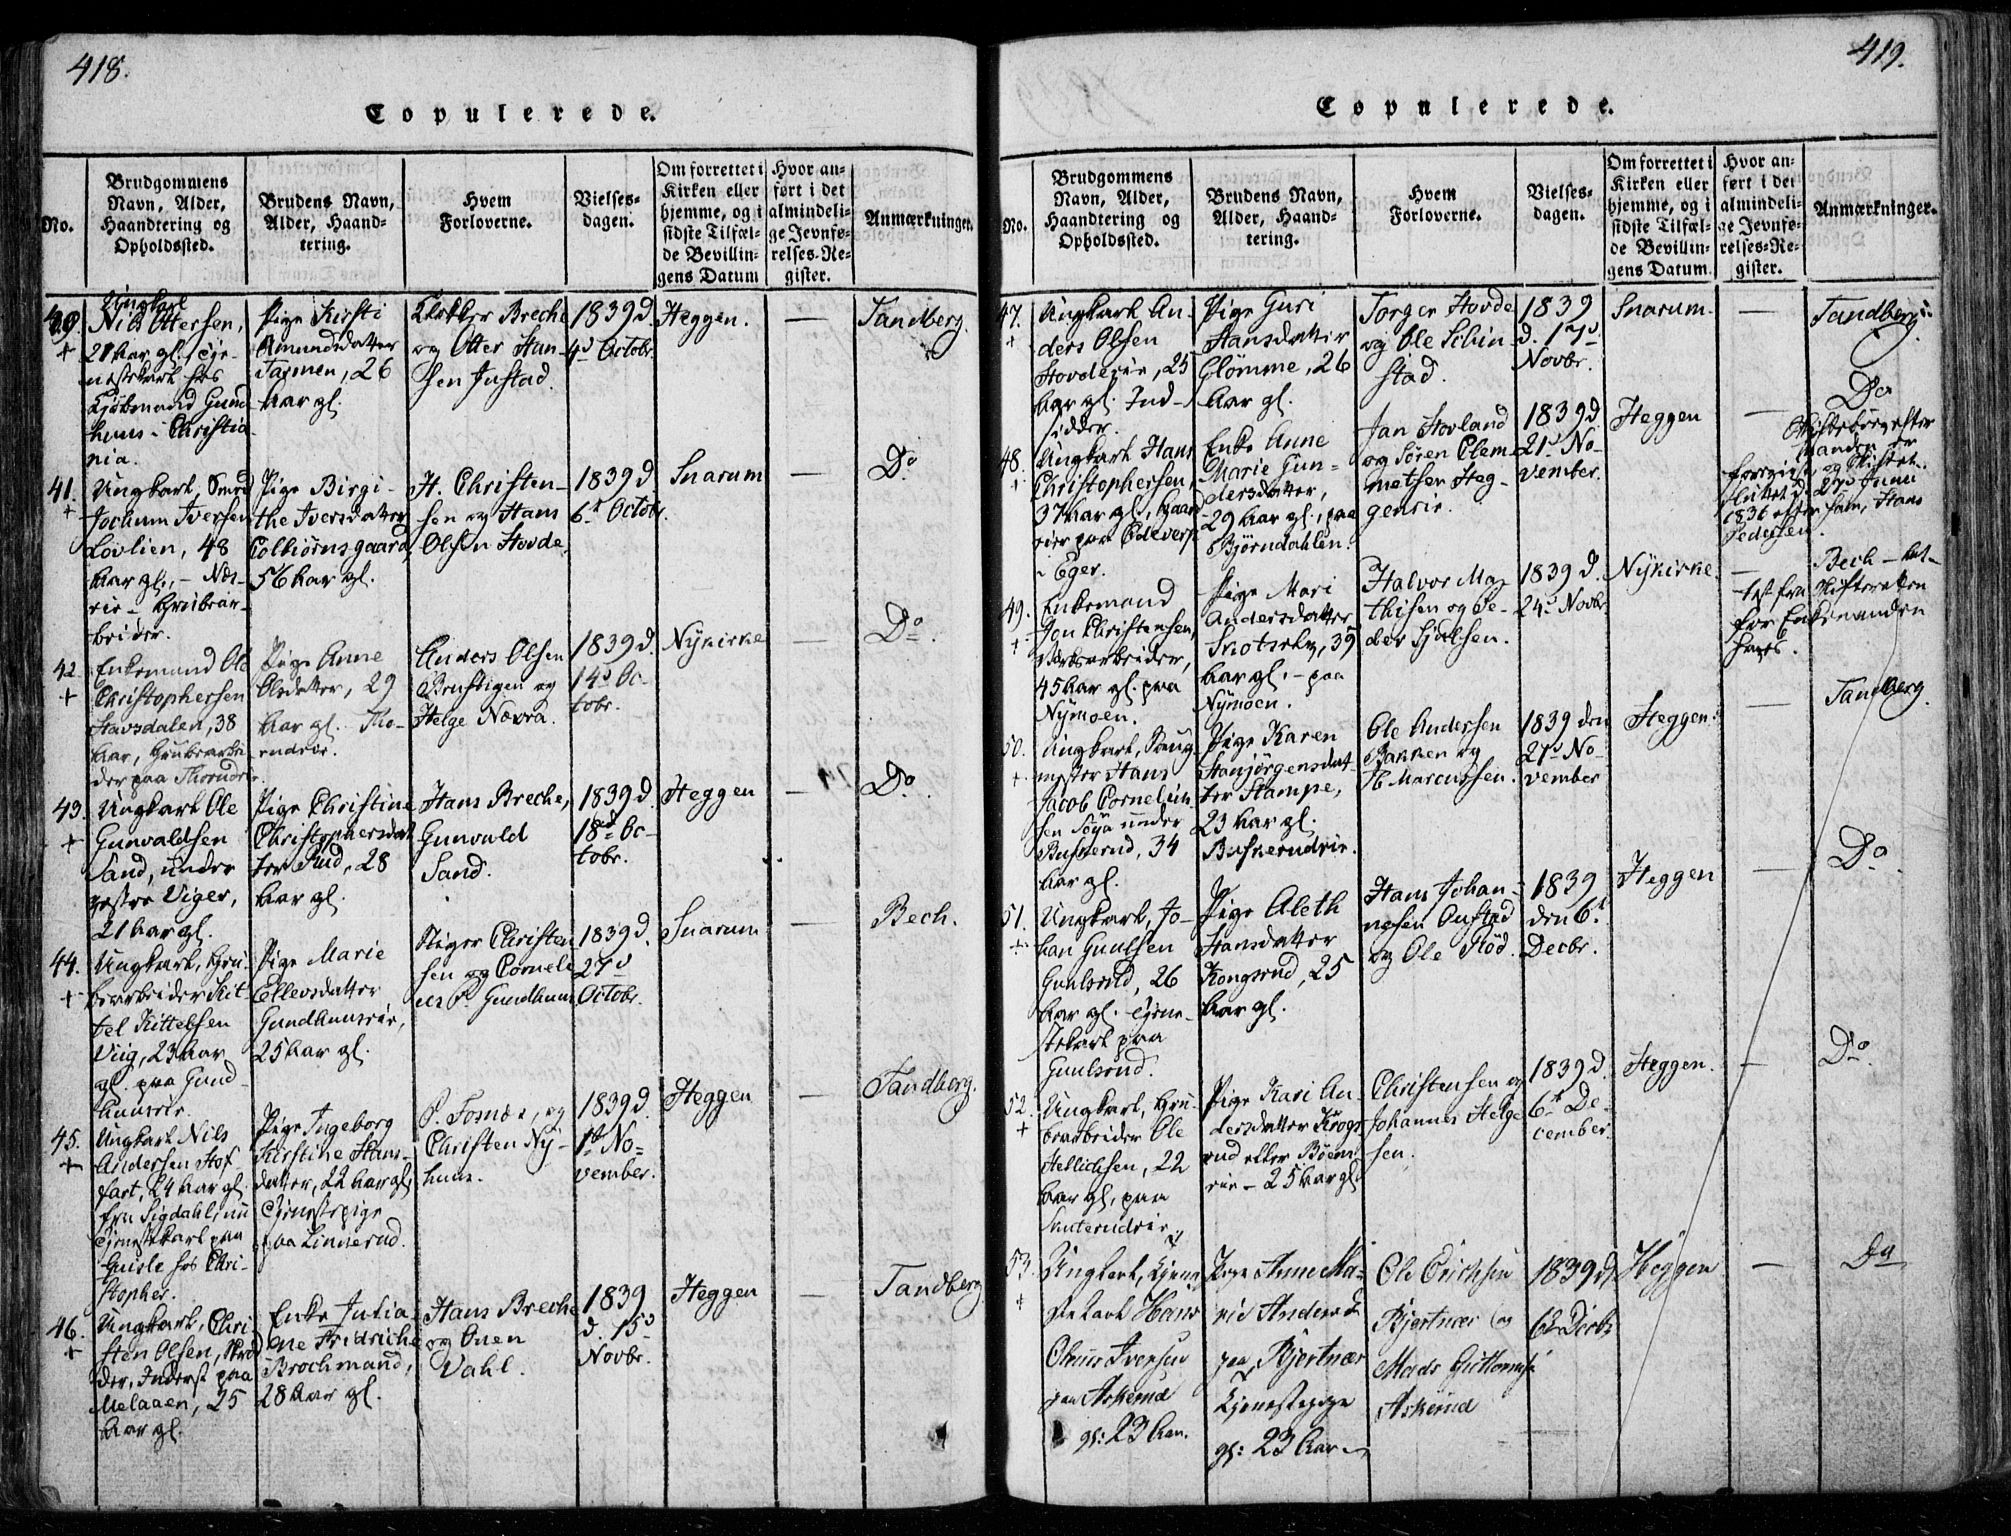 418.
Copulerede.
No.
Brudgommens
Navn, Alder,
Haandtering og
Opholdssted.
Brudens Navn,
Alder, Haand-
tering.
Hvem
Forloverne.
Vielses-
dagen.
Om forrettet i
Kirken eller
hjemme, og i
sidste Tilfæl-
de Bevillin-
gens Datum
Hvor an-
ført i det
almindeli-
ge Jevnfø-
relses-Re-
gister.
Anmærkninger.
Ungkarl
Nils Ottersen,
21 Aar gl. Tje-
nestekarl hos
Kjøbmand Gund
huus i Christia
nia.
Pige Kirsti
Amundsdatter
Tarmen, 26
Aar gl.
Klokker Breche
og Otter Han-
sen Justad.
1839 d.
4d Octobr.
Heggen.
—
Tandberg.
41.
Ungkarl, Smed
Jochum Iversen
Lovlien, 48
Aar gl.
Grubear-
beider.
Pige Birgi-
the Iversdatter
Colbiørnsgaard,
56 Aar gl.
H. Christen-
sen og Hans
Olsen Hovde.
1839 d.
6t Octobr.
Snarum
—
Do
42
Enkemand Ole
Christophersen
Havsdalen, 38
Aar, Grubearbei
der paa Thorud
Pige Anne
Olsdatter, 29
Aar gl.
Anders Olsen
og
Helge Nævra.
1839 d.
14d Oc-
tobr.
Nykirke
—
Do.
43.
Ungkarl Ole
Gunvaldsen
Sand, under
vestre Viger,
21 Aar gl.
Pige Christine
Christophersdat
ter Lud, 28
Aar gl.
Hans Breche,
Gunvald
Sand.
1839 d.
18d Oc-
tobr.
Heggen
—
Do
44.
Ungkarl, Gru
bearbeider Kit
tel Kittelsen
Viig, 23 Aar
gl. paa Gund
huuseie.
Pige Marie
Ellevsdatter
Gundhuuseie,
25 Aar gl.
Christen
sen og Corneli
us P. Gundhuus.
1839 d.
27d
Octobr.
Snarum
—
Bech.
45.
Ungkarl Nils
Andersen Hof-
fart, 24 Aar gl.
fra Sigdahl, nu
Tjenestekarl paa
hos Chri-
stopher.
Pige Ingeborg
Kirstine Hans-
datter, 22 Aar gl.
Tjenestepige
paa Linnerud.
P. Fosnæs, og
Christen Ny-
huus.
1839 d.
1t No-
vember.
Heggen
—
Tandberg.
46.
Ungkarl, Chri
sten Olsen, Skræd
der, Inderst paa
Melaaen, 25
Aar gl.
Enke Julia-
ne Fridriche
Brochmand,
28 Aar gl.
Hans Breche
og Ouen
Vahl.
1839
d. 15d
Novbr.
Heggen
—
Tandberg
419.
Copulerede.
No.
Brudgommens
Navn, Alder,
Haandtering og
Opholdssted.
Brudens Navn,
Alder, Haand-
tering.
Hvem
Forloverne.
Vielses-
dagen.
Om forrettet i
Kirken eller
hjemme, og i
sidste Tilfæl-
de Bevillin-
gens Datum.
Hvor an-
ført i det
almindeli-
ge Jevnfø-
relses-Re-
gister.
Anmærkninger.
47.
Ungkarl An-
ders Olsen
Hovdeeie, 25
Aar gl. Ind-
sidder.
Pige Guri
Hansdatter
Glømme, 26
Aar gl.
Torger Hovde
og Ole Schin-
stad.
1839
d. 17d
Novbr.
Snarum.
—
Tandberg.
48.
Ungkarl Hans
Christophersen,
37 Aar gl., Gaard
eier paa
i Eger.
Enke Anne
Marie Gun-
dersdatter,
29 Aar gl., paa
Bjørndahlen.
Jan Hovland
og Søren Clem-
metsen Heg-
geneie.
1839 d.
21d No-
vember.
Heggen
—
Do
Skiftebrev efter
Manden er
forevist og Skiftet
sluttet d. 27d Juni
1836 efter ham, Hans
Pedersen.
49.
Enkemand
Jon Christensen,
Værksarbeider,
45 Aar gl. paa
Nymoen.
Pige Mari
Andersdatter
Skotselv, 39
Aar gl. – paa
Nymoen.
Halvor Ma-
thisen og Pe-
der Sjulsen.
1839 d.
24d Novbr
Nykirke.
—
Bech – At-
test fra Skifteretten
for Enkemanden
haves.
50.
Ungkarl, Saug-
mester Hans
Jacob Corneliu-
sen Søya under
Buskerud, 34
Aar gl.
Pige Karen
Hansjørgensdat-
ter Stampe,
23 Aar gl.
Buskerudeie.
Ole Andersen
Bakken og
H. Marcussen.
1839 den
27d No-
vember
Heggen.
—
Tandberg.
51.
Ungkarl, Jo-
han Guulsen
Guulsrud, 26
Aar gl. Tjene-
stekarl paa
Guulsrud.
Pige Aleth
Hansdatter
Kongsrud, 25
Aar gl.
Hans Johan-
nesen Aufstad
og Ole Flød.
1839
den 6t
Decbr.
Heggen
—
Do.
52.
Ungkarl, Gru-
bearbeider Ole
Hellichsen, 22
Aar gl., paa
Pige Kari An-
dersdatter Krogs-
rud eller Bøens-
eie – 25 Aar gl.
Christensen og
Johannes Helge-
sen.
1839 d.
6t De-
cember.
Heggen.
—
Do
53.
Ungkarl, Tjene
stekarl Hans
Olaus Iversen
paa Askerud
gl: 23 Aar.
Pige Anne Ma-
rie Andersd.
paa Bjertnæs
Tjenestepige
gl: 23 Aar
Ole Erichsen
Bjertnæs og
Mads Guttormsen
Askerud
1839 d.
6te Decbr
Heggen
—
Do